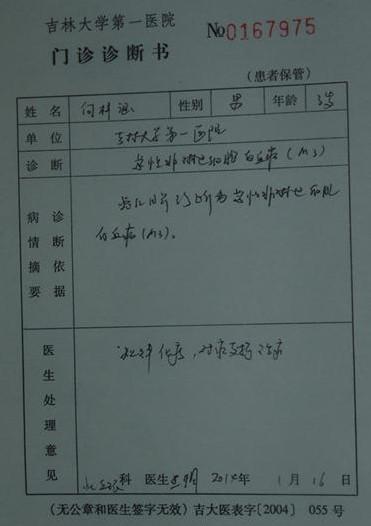 吉林大学第一医院
门诊诊断书
№0167975
(患者保管)
姓名 性别 男 年龄
单位 吉林大学第一医院
诊断 急性非淋巴细胞白血病(M3)
病情摘要 诊断依据
诊断为急性非淋巴细胞
白血病(M3)。
医生处理意见
化疗,对症支持治疗
科 医生 2014年 1月16日
(无公章和医生签字无效) 吉大医表字[2004] 055号